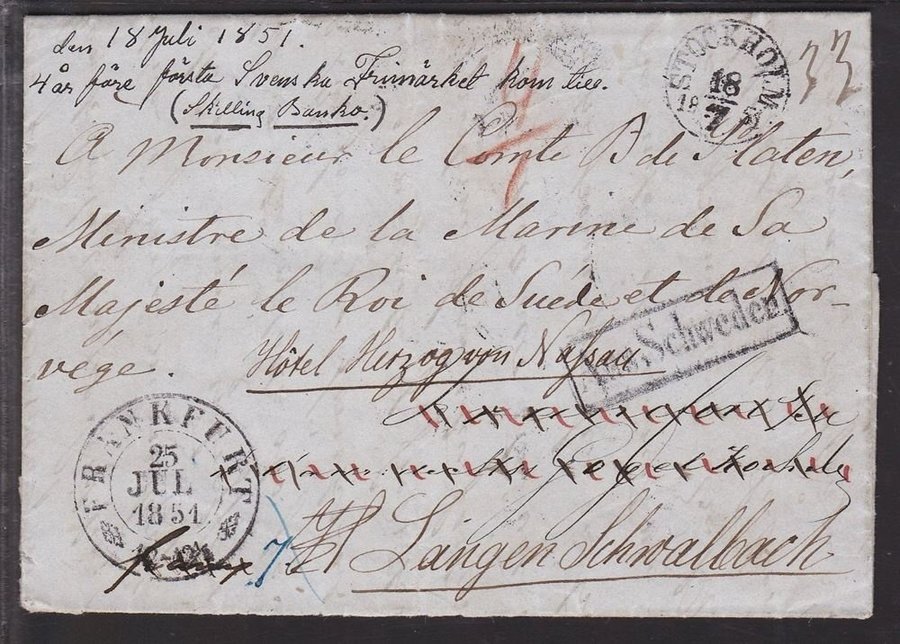 den 18 Juli 1851.
4 år före första Svenska Frimärket kom till.
(Skilling Banko.)
STOCKHOLM
18
7
33
A Monsieur le Comte B de Platen,
Ministre de la Marine de Sa
Majesté le Roi de Suéde et de Nor-
vége.
Hôtel Herzog von Nassau
Aus Schweden
FRANKFURT
25
JUL
1851
7
Langen Schwalbach